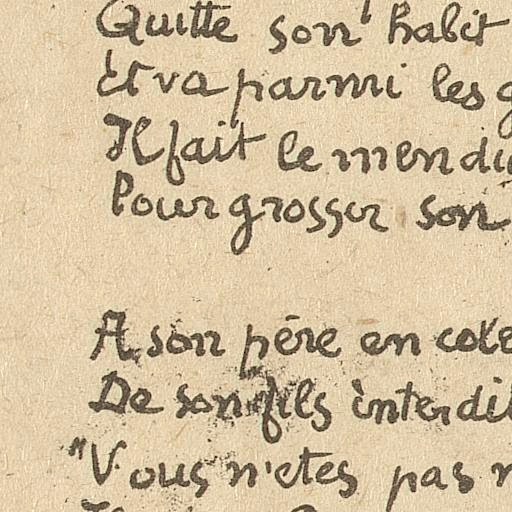 Quitte son habit
Et va parmi les
Il fait le mendi
Pour grosser son
A son père en cole
De son fils interdit
"Vous n'etes pas